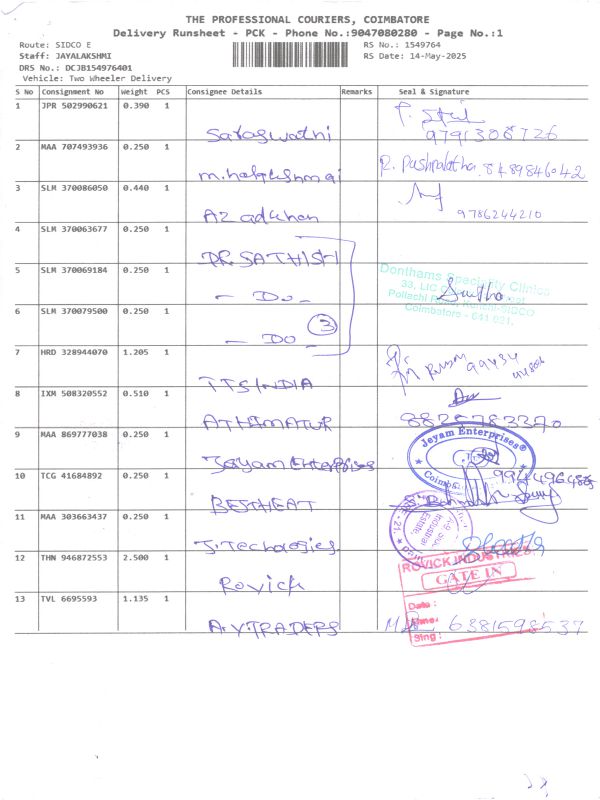 THE PROFESSIONAL COURIERS, COIMBATORE
Delivery Runsheet - PCK - Phone No.:9047080280 - Page No.:1
Route: SIDCO E
RS No.: 1549764
Staff: JAYALAKSHMI
RS Date: 14-May-2025
DRS No.: DCJB154976401
Vehicle: Two Wheeler Delivery
S No Consignment No Weight PCS Consignee Details Remarks Seal & Signature
1 JPR 502990621 0.390 1
Saraswathi 9791308726
2 MAA 707493936 0.250 1
R. Pushpalatha 8489846042
3 SLM 370086050 0.440 1
Azadkhan 9786244210
4 SLM 370063677 0.250 1
DR. SATHISH
5 SLM 370069184 0.250 1
- Do - Donthams Specialty Clinics
33, LIC
Pollachi Road, SIDCO
Coimbatore - 641 021.
6 SLM 370079500 0.250 1
- DO - 3
7 HRD 328944070 1.205 1
TTS INDIA
8 IXM 508320552 0.510 1
9 MAA 869777038 0.250 1
Jeyam Enterprises Jeyam Enterprises®
10 TCG 41684892 0.250 1
BESTHEAT
11 MAA 303663437 0.250 1
12 THN 946872553 2.500 1
Rovick ROVICK INDUSTRIES
GATE IN
13 TVL 6695593 1.135 1
Date :
Time :
Sing :
A.V.TRADERS 6381598537